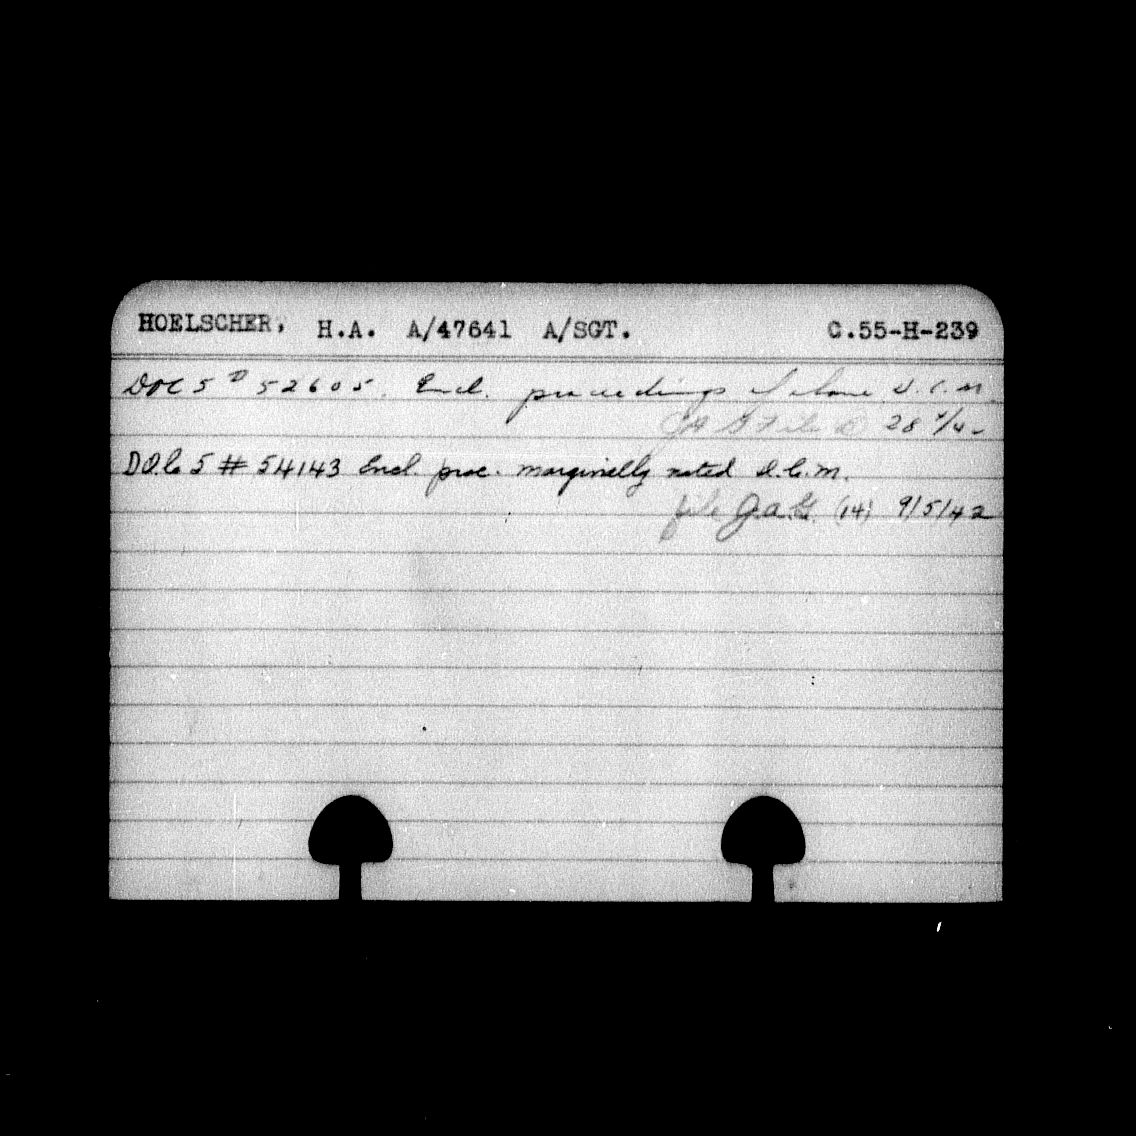 HOELSCHER, H.A. A/47641 A/SGT. C.55-H-239
DOC 5 D 52605. Encl. proceedings of above D.C.M.
JAG File 28 /4-
D.O.C 5 # 54143 Encl. proc. marginally noted D.C.M.
file J.A.G. (14) 9/5/42